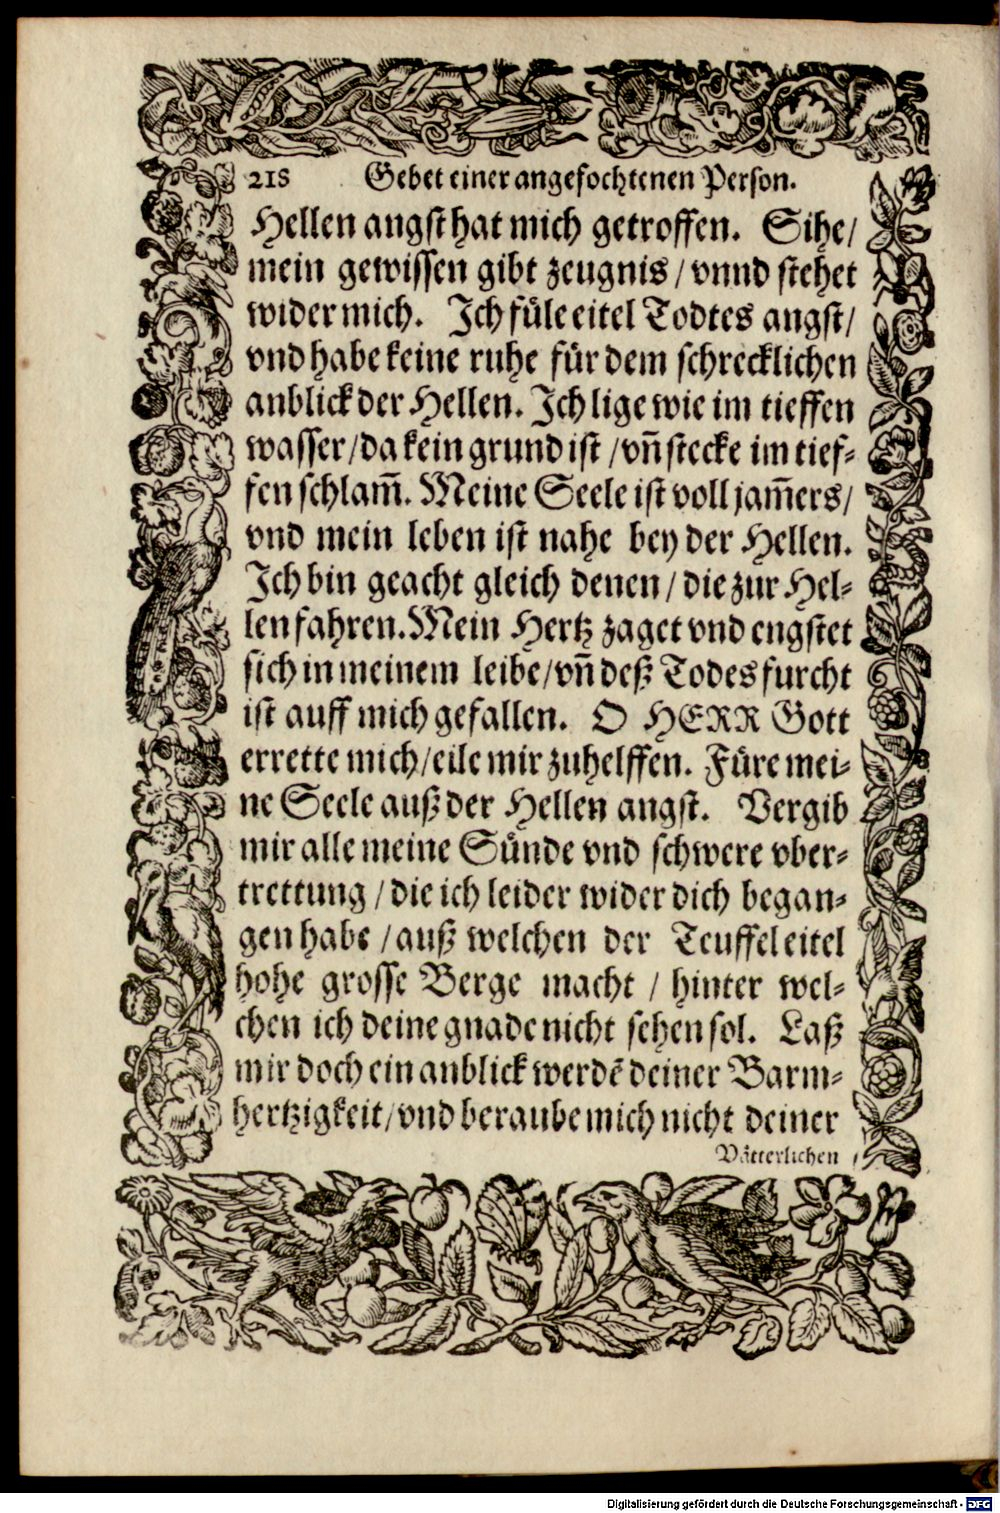 218 Gebet einer angefochtenen Person.
Hellen angst hat mich getroffen. Sihe/
mein gewissen gibt zeugnis / vnnd stehet
wider mich. Ich füle eitel Todtes angst/
vnd habe keine ruhe für dem schrecklichen
anblick der Hellen. Ich lige wie im tieffen
wasser/da kein grund ist /vñ stecke im tief-
fen schlam̃. Meine Seele ist voll jam̃ers/
vnd mein leben ist nahe bey der Hellen.
Ich bin geacht gleich denen / die zur Hel-
len fahren. Mein Hertz zaget vnd engstet
sich in meinem leibe/vñ deß Todes furcht
ist auff mich gefallen. O HERR Gott
errette mich/eile mir zuhelffen. Füre mei-
ne Seele auß der Hellen angst. Vergib
mir alle meine Sünde vnd schwere vber-
trettung /die ich leider wider dich began-
gen habe /auß welchen der Teuffel eitel
hohe grosse Berge macht / hinter wel-
chen ich deine gnade nicht sehen sol. Laß
mir doch ein anblick werdẽ deiner Barm-
hertzigkeit/vnd beraube mich nicht deiner
Vätterlichen
Digitalisierung gefördert durch die Deutsche Forschungsgemeinschaft - DFG